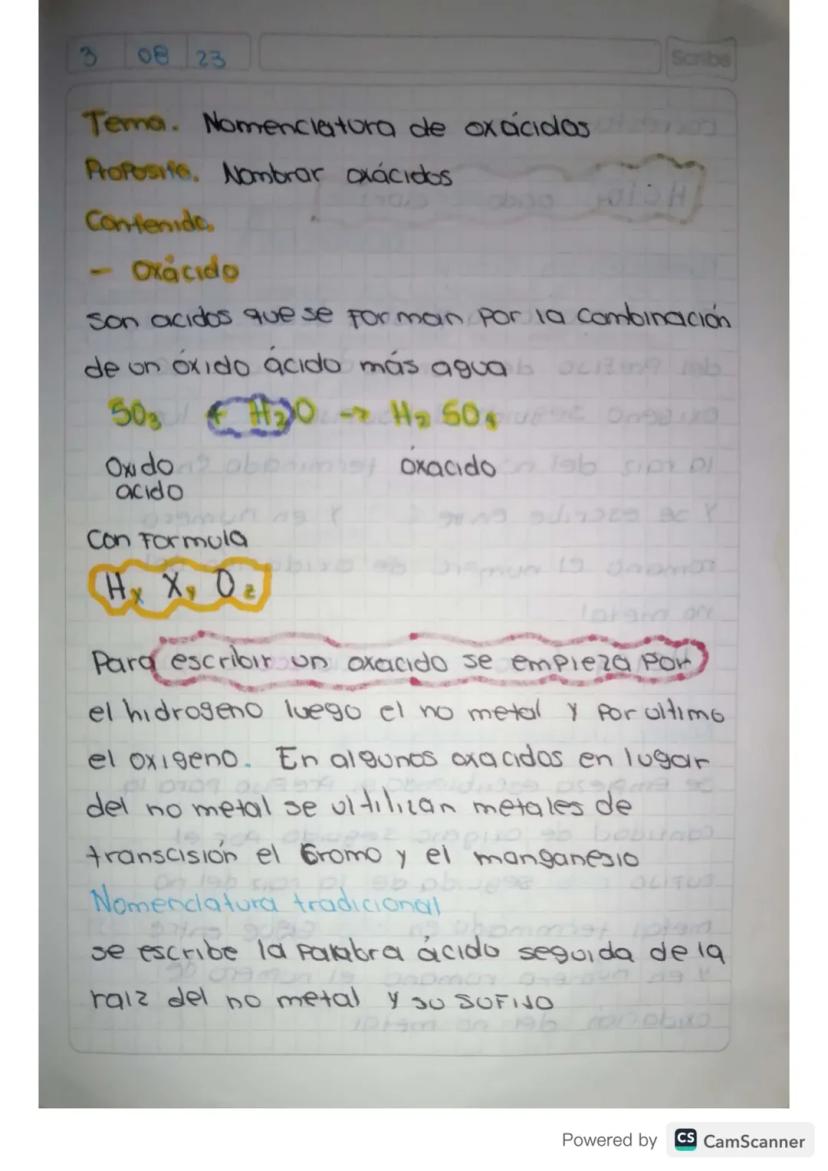 3 08 23
Scribe
Tema. Nomenclatura de oxácidos
Proposito. Nombrar oxácidos
Contenido.
- Oxácido
son acidos que se forman por la combinación
de un óxido ácido más agua
SO3 + H2O → H2 SO4
Oxido oxacido
acido
Con Formula
Hx Xy Oz
Para escribir un oxacido se empieza por
el hidrogeno luego el no metal y por ultimo
el oxigeno. En algunos oxacidos en lugar
del no metal se ultilizan metales de
transcisión el Cromo y el manganesio
Nomenclatura tradicional
se escribe la palabra ácido seguida de la
raiz del no metal y su sufijo
Powered by CS CamScanner